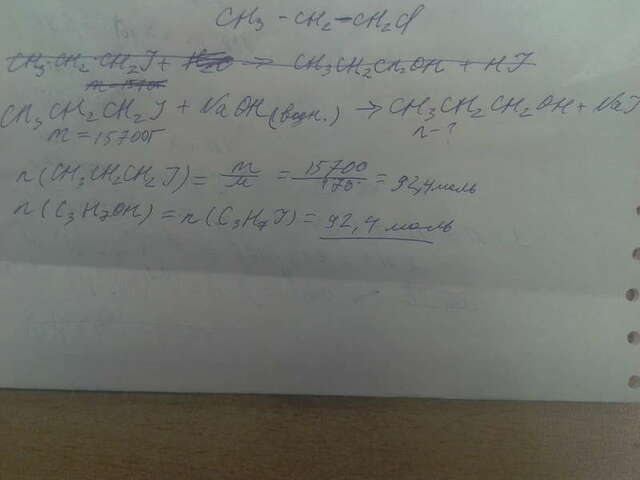 CH3 - CH2 - CH2Cl
CH3CH2CH2J + H2O → CH3CH2CH2OH + HJ
m = 15700г
CH3CH2CH2J + NaOH(водн.) → CH3CH2CH2OH + NaJ
m = 15700г n - ?
n(CH3CH2CH2J) = m/M = 15700/170 = 92,4 моль
n(C3H7OH) = n(C3H7J) = 92,4 моль